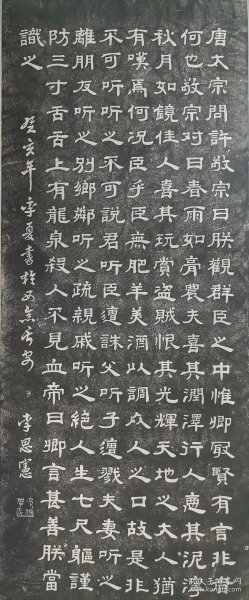 唐太宗問許敬宗曰朕觀群臣之中惟卿寂賢有言非者
何也敬宗對曰春雨如膏農夫喜其潤澤行人惡其泥濘
秋月如鏡佳人喜其玩賞盜賊恨其光輝天地之大人猶
有嘆焉何況臣乎臣無肥羊美酒以調眾人之口故是非
不可听听之不可說君听臣遭誅父听子遭戮夫妻听之
離朋友听之別鄉鄰听之疏親戚听之絕人生七尺軀謹
防三寸舌舌上有龍泉殺人不見血帝曰卿言甚善朕當
識之
癸亥年季夏書於 李思憲